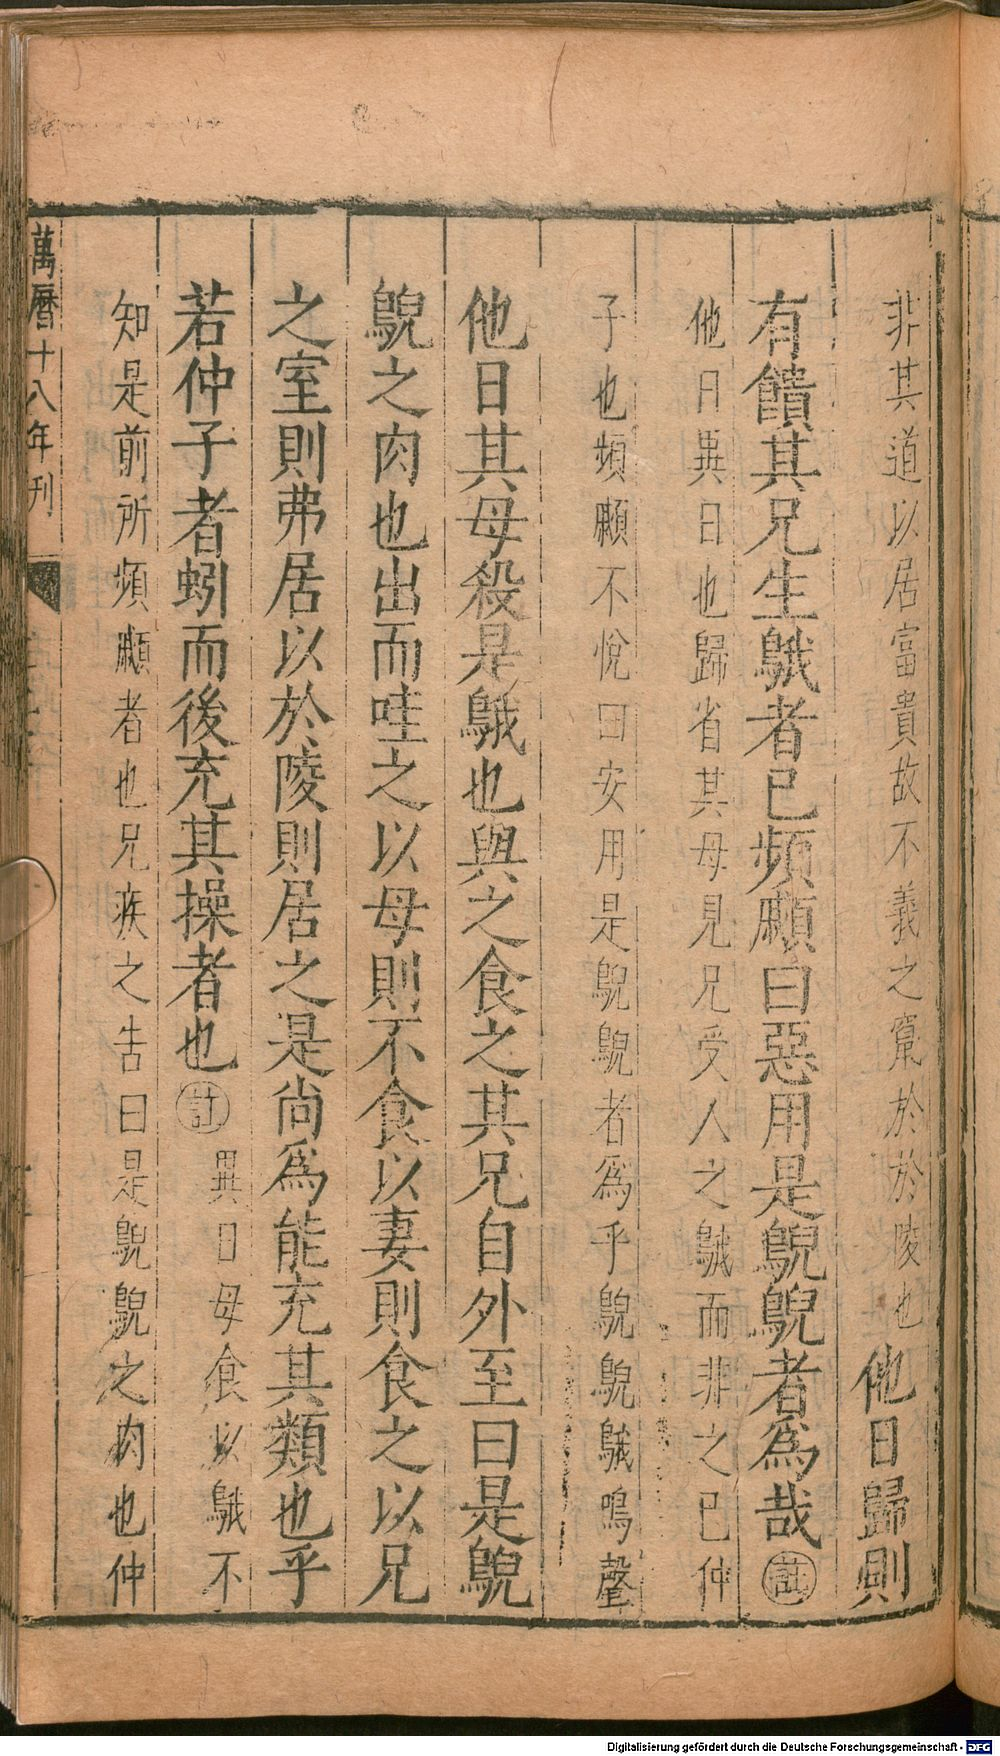 非其道以居富貴故不義之竄於於陵也他日歸則
有饋其兄生鵝者已頻顣曰惡用是鶃鶃者爲哉註
他日異日也歸省其母見兄受人之鵝而非之已仲
子也頻顣不悅曰安用是鶃鶃者爲乎鶃鶃鵝鳴聲
他日其母殺是鵝也與之食之其兄自外至曰是鶃
鶃之肉也出而哇之以母則不食以妻則食之以兄
之室則弗居以於陵則居之是尚爲能充其類也乎
若仲子者蚓而後充其操者也註異日母食以鵝不
知是前所頻顣者也兄疾之告曰是鶃鶃之肉也仲
萬曆十八年刊
Digitalisierung gefördert durch die Deutsche Forschungsgemeinschaft - DFG